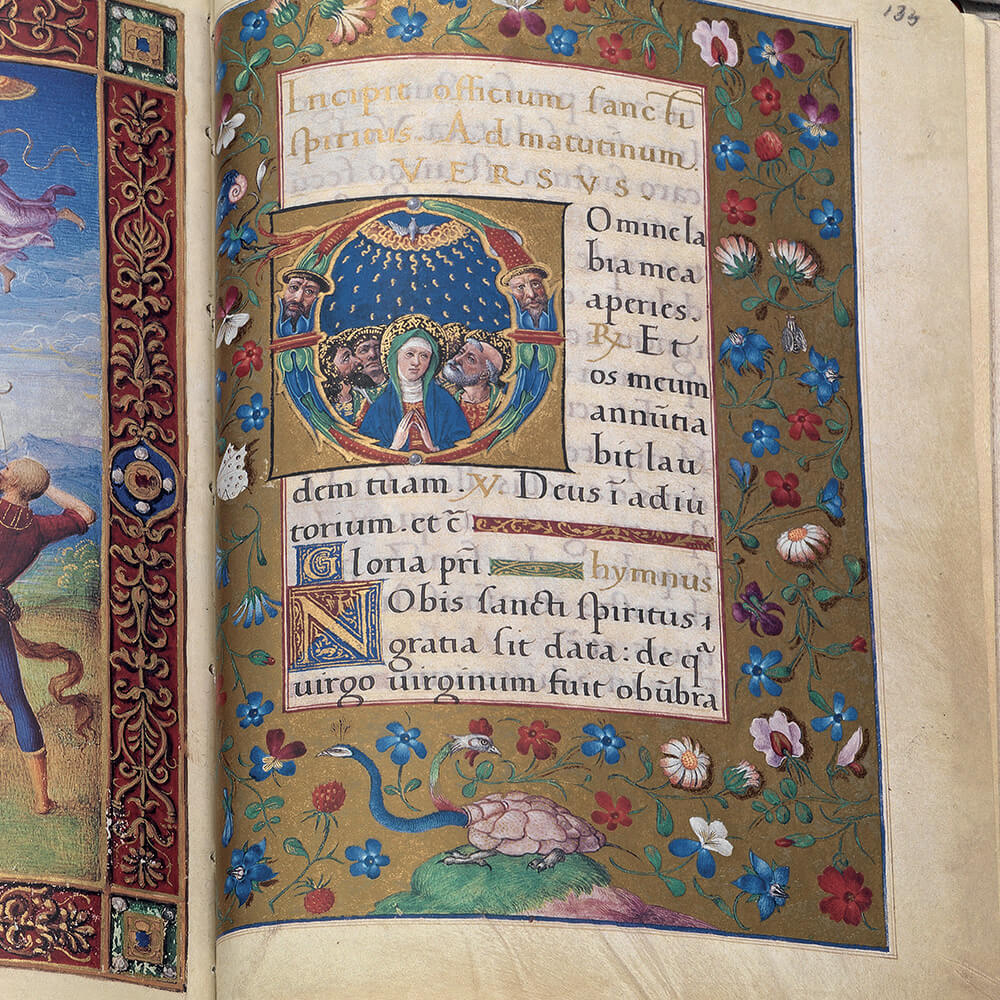 133
Incipit officium sancti
spiritus. Ad matutinum.
VERSUS.
DOmine la
bia mea
aperies.
R̷ Et
os meum
annũtia
bit lau
dem tuam V̷ Deus ĩ adiu
torium. et c̃
Gloria pr̃i hymnus
NObis sancti spiritus
gratia sit data: de qª
uirgo uirginum fuit obũbra